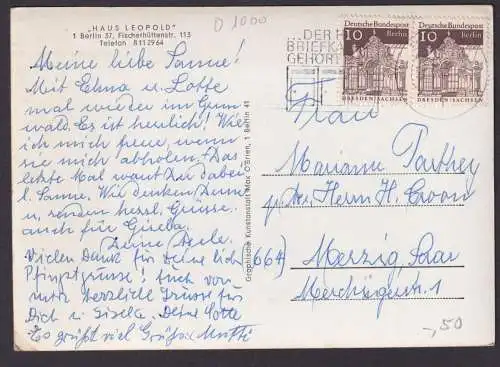 „HAUS LEOPOLD"
1 Berlin 37, Fischerhüttenstr. 113
Telefon 8112964
D 1000
Meine liebe Sanne!
Mit Edna u. Lotte
mal wieder im Grune
wald. Es ist herrlich! Wie
ich mich freue, wenn
sie mich abholen. Das
letzte Mal warst Du dabei
l. Sanne. Wir denken Deiner
u. senden herzl. Grüsse
auch für Gisela.
Deine
Vielen Dank für Deine lieb
Pfingstgrüsse! Euch
herzliche Grüsse für
Dich u. Gisela. Deine Lotte
Es grüßt viel Mutti
Graphische Kunstanstalt Max O'Brien, 1 Berlin 41
...DER H
BRIEFKA
GEHÖRT
10 Deutsche Bundespost Berlin
DRESDEN/SACHSEN
10 Deutsche Bundespost Berlin
DRESDEN/SACHSEN
Frau
Marianne Parthey
Hr. Herrn H. Croon
(664) Merzig, Saar
Merchingerstr. 1
-,50